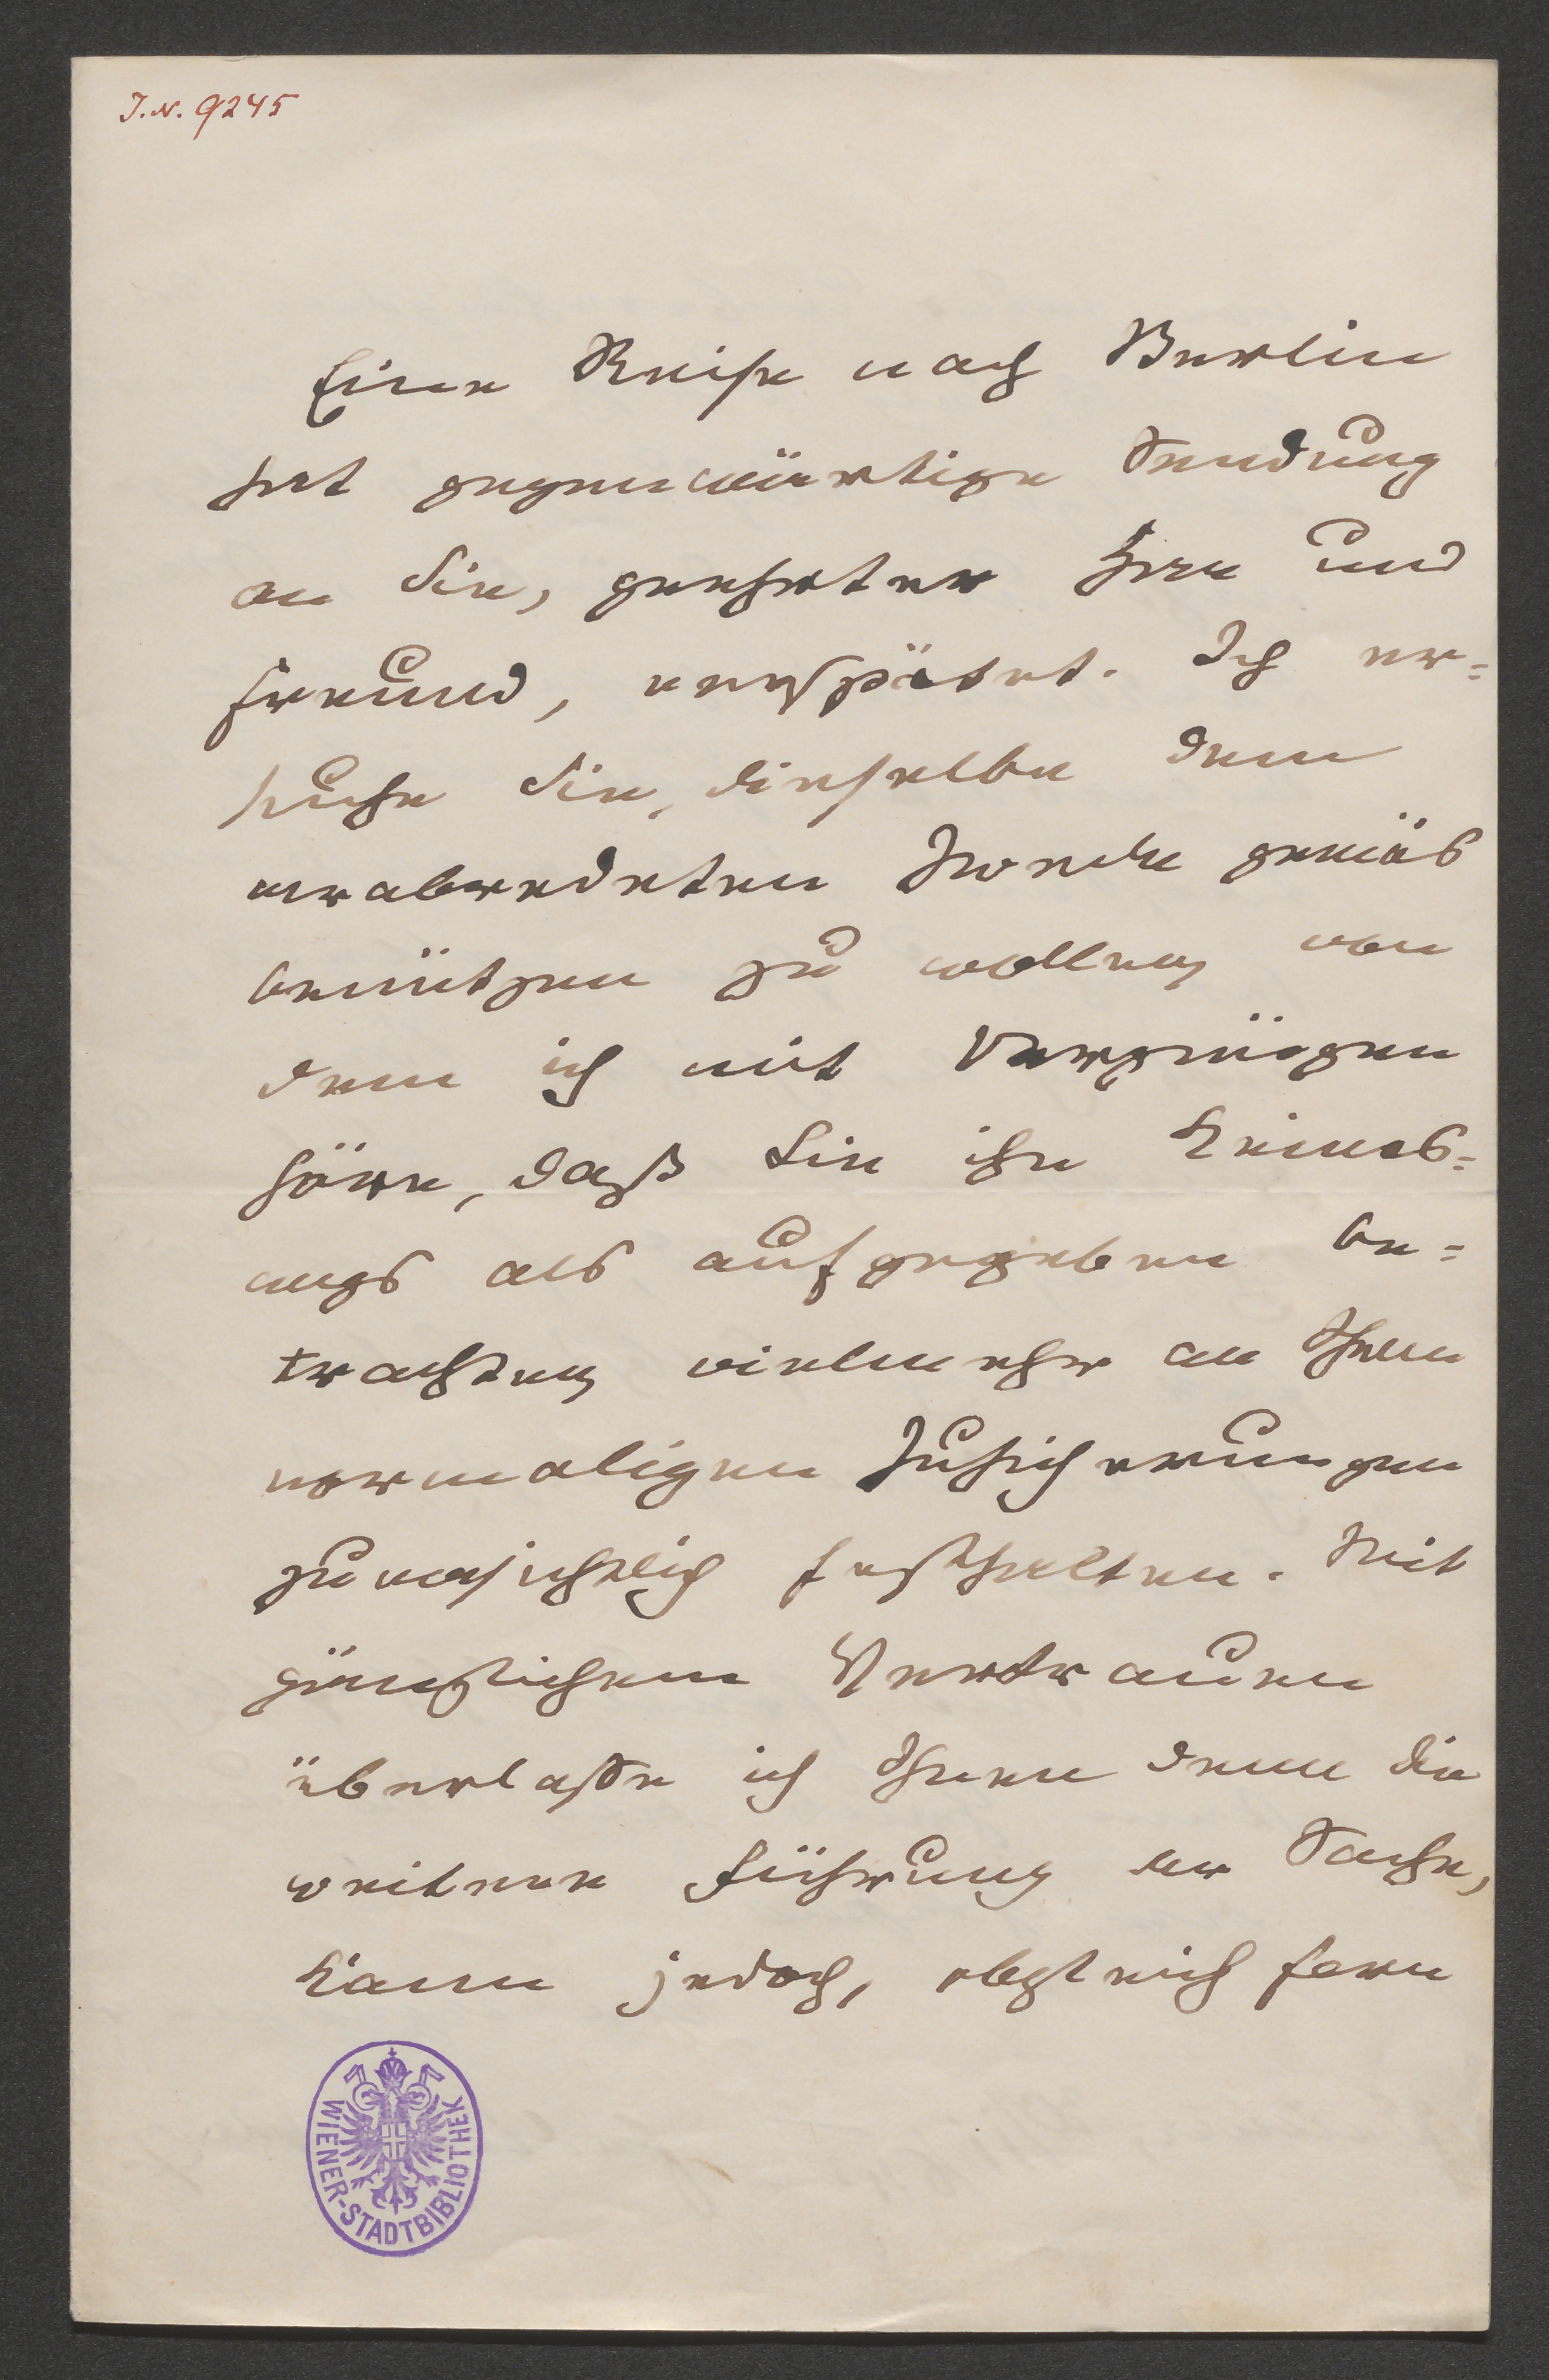 I.N. 9245
Eine Reise nach Berlin
hat gegenwärtige Sendung
an Sie, geehrter Herr und
Freund, verspätet. Ich er=
suche Sie, dieselbe dem
verabredeten Zwecke gemäs
benützen zu wollen, von
dem ich mit Vergnügen
höre, daß Sie ihn keines=
wegs als aufgegeben be=
trachten, vielmehr an Ihren
vormaligen Zusicherungen
zuversichtlich festhalten. Mit
gänzlichem Vertrauen
überlasse ich Ihnen denn die
weitere Führung der Sache,
kann jedoch, obgleich fern
WIENER-STADTBIBLIOTHEK